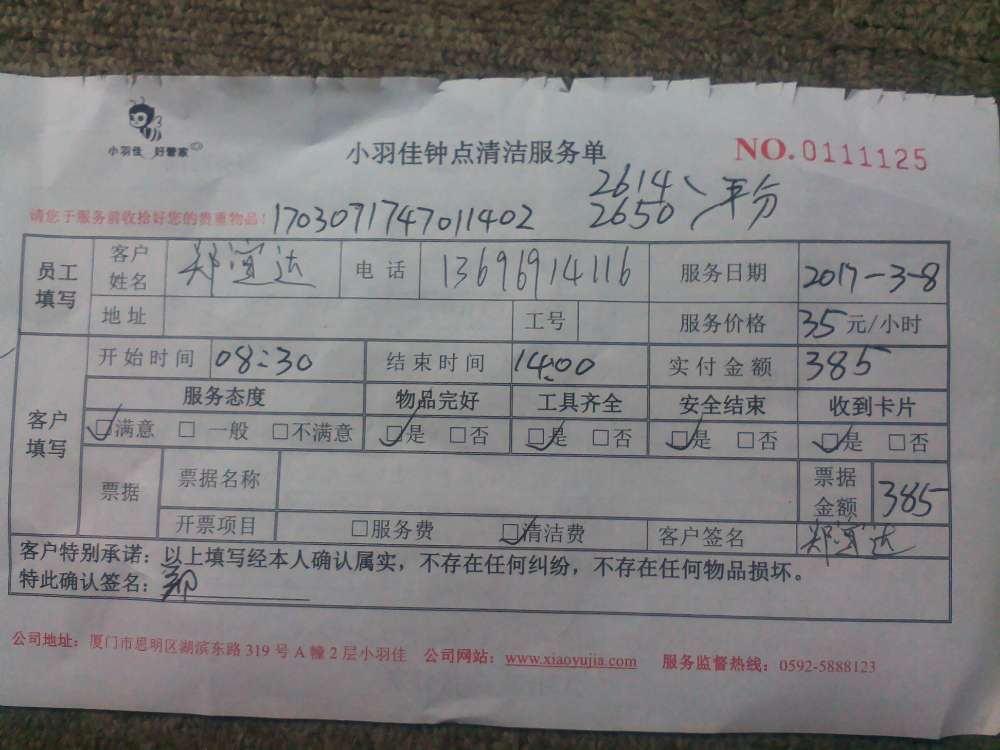 小羽佳 好管家
小羽佳钟点清洁服务单
NO.0111125
2614、平分
2650
请您于服务前收拾好您的贵重物品！1703071747011402
员工填写 客户姓名 郑宜达 电话 13696914116 服务日期 2017-3-8
地址 工号 服务价格 35元/小时
客户填写 开始时间 08:30 结束时间 14:00 实付金额 385
服务态度 物品完好 工具齐全 安全结束 收到卡片
☑满意 □ 一般 □不满意 ☑是 □否 ☑是 □否 ☑是 □否 ☑是 □否
票据 票据名称 票据金额 385
开票项目 □服务费 ☑清洁费 客户签名 郑宜达
客户特别承诺：以上填写经本人确认属实，不存在任何纠纷，不存在任何物品损坏。
特此确认签名：郑
公司地址：厦门市思明区湖滨东路 319 号 A 幢 2 层小羽佳 公司网站：www.xiaoyujia.com 服务监督热线：0592-5888123